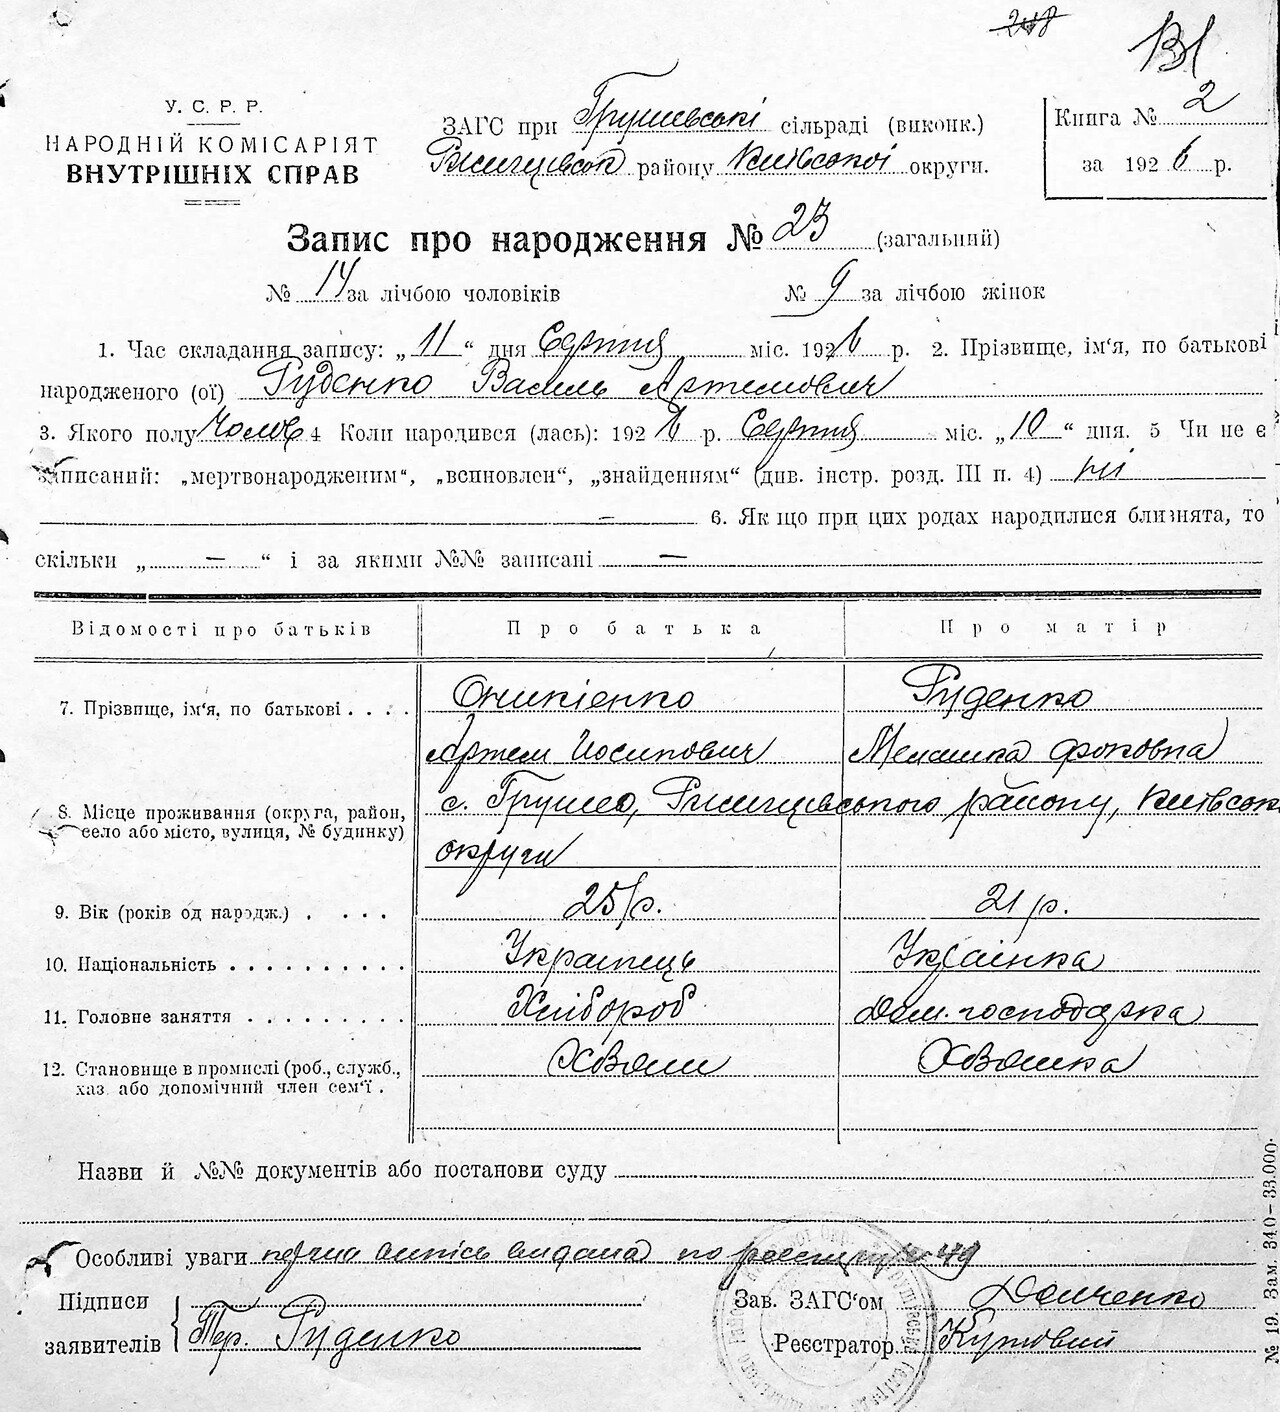 248
131
У. С. Р. Р.
НАРОДНІЙ КОМІСАРІЯТ
ВНУТРІШНІХ СПРАВ
ЗАГС при Грушевські сільраді (виконк.)
Ржищевськ району Київської округи.
Книга № 2
за 1926 р.
Запис про народження № 23 (загальний)
№ 14 за лічбою чоловіків № 9 за лічбою жінок
1. Час складання запису: „11“ дня Серпня міс. 1926 р. 2. Прізвище, ім'я, по батькові
народженого (ої) Руденко Василь Артемович
3. Якого полу Чолов 4 Коли народився (лась): 1926 р. Серпня міс. „10“ дня. 5 Чи не є
записаний: „мертвонародженим“, „всиновлен“, „знайденням“ (див. інстр. розд. III п. 4) ні
— 6. Якщо при цих родах народилися близнята, то
скільки „—“ і за якими №№ записані —
Відомості про батьків Про батька Про матір
7. Прізвище, ім'я, по батькові . . . . Оникієнко Руденко
Артем Йосипович Мелашка Фоковна
8. Місце проживання (округа, район, село або місто, вулиця, № будинку) с. Грушево, Ржищевського району, Київськ
округи
9. Вік (років од народж.) . . . . 25 р. 21 р.
10. Національність . . . . . . . . . . Українець Українка
11. Головне заняття . . . . . . . . . Хлібороб Дом. господарка
12. Становище в промислі (роб., служб., хаз або допомічний член сем'ї . Хазяїн Хазяйка
Назви й №№ документів або постанови суду
Особливі уваги перша випись видана по реєстру № 49
Підписи
заявителів Руденко
Зав. ЗАГС'ом Демченко
Реєстратор Кутовий
№ 19. Зам. 340—33.000.